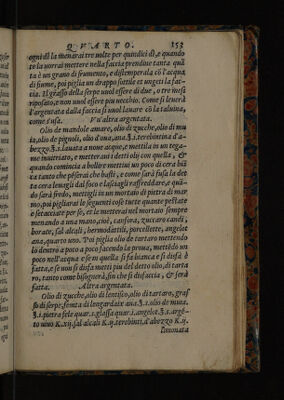 QVARTO. 153
ogni dì la menerai tre uolte per quindici dì, e quando
te la uorrai mettere nella faccia prendine tanta quã
ta è un grano di formento, e distemperala cõ l'acqua
di fiume, poi piglia un drappo sottile et ungeti la fac-
cia. Il grasso della serpe uuol essere di due, o tre mesi
riposato, e non uuol essere piu uecchio. Come si leuerà
l'argentata dalla faccia si uuol lauare cõ la saliuina,
come s'usa. Vn'altra argentata.
Olio di mandole amare, olio di zucche, olio di mu
ta, olio de pignoli, olio d'oua, ana. terebintina d'a
bezzo. lauata a none acque, e mettila in un tega
me inuitriato, e metteui i detti olij con quella, &
quando comincia a bollire mettiui un poco di cera biã
ca tanto che ti parerà che basti, e come sarà fusa la det
ta cera leuagli dal fuoco e lasciagli raffreddare, e quã-
do sarà fredo, mettigli in un mortaio di pietra di mar
mo, poi pigliarai le seguenti cose tutte quante pestate
e setacciate per se, et le metterai nel mortaio sempre
menando a una mano, cioè, canfora, zuccaro candi,
borace, sal alcali, hermodattili, porcellette, angelot
ana, quarto uno. Poi piglia olio de tartaro mettendo
lo dentro a poco a poco facendo la proua, mettēdo un
poco nell'acqua e se in quella si fa bianca e si disfà è
fatta, e se non si disfa metti piu del detto olio, di tarta
ro, tanto come bisognerà, fin che si disfaccia, & sarà
fatta. Altra argentata.
Olio di zucche, olio di lentisco, olio di tartaro, gras
so di serpe, sonza di longardaix ana. olio de muta.
i. pietra fele quar. i. glassa quar. i. angelot. i. argē-
to uiuo K. xij. sal alcali K. ij. terebint. d'abezzo K. ij.
Limonata